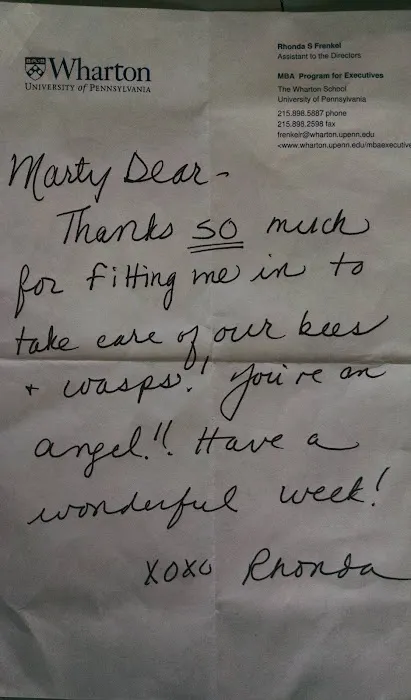 Wharton
UNIVERSITY of PENNSYLVANIA
Rhonda S Frenkel
Assistant to the Directors
MBA Program for Executives
The Wharton School
University of Pennsylvania
215.898.5887 phone
215.898.2598 fax
frenkelr@wharton.upenn.edu
<www.wharton.upenn.edu/mbaexecutive
Marty Dear -
Thanks so much
for fitting me in to
take care of our bees
+ wasps!! You're an
angel!! Have a
wonderful week!
XOXO Rhonda